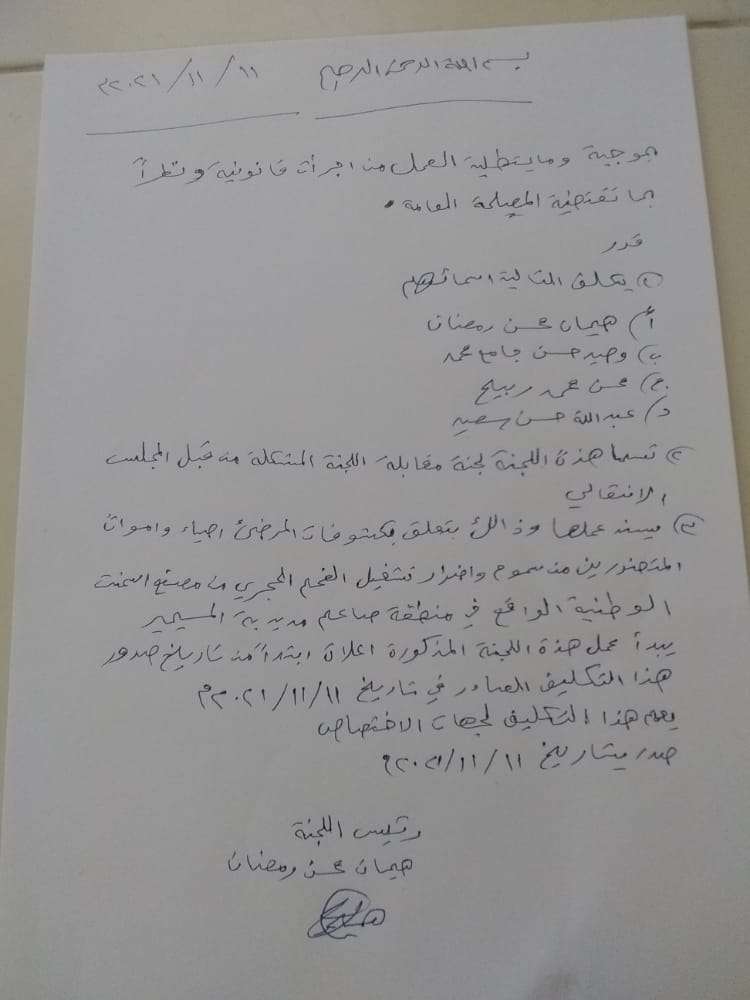 بسم الله الرحمن الرحيم ١١/١١/٢٠٢١م
بموجبة وما يتطلبة العمل من اجرأت قانونية ونظراً
بما تقتضية المصلحة العامة.
قرر
١) يكلف التالية اسمائهم
أ) هيمان محسن رمضان
ب) وحيد حسن جامع محمد
ج) محسن محمد ربيح
د) عبدالله حسن سعيد
٢) تسما هذة اللجنة لجنة مقابلة اللجنة المشكلة من قبل المجلس
الانتقالي
٣) يسند عملها وذالك بتعلق بكشوفات المرضئ احياء واموات
المتضررين من سموم واضرار تشغيل الفحم الحجري من مصنع اسمنت
الوطنية الواقع في منطقة مديرية المسيمير
يبدأ عمل هذة اللجنة المذكورة اعلان ابتداً من تاريخ صدور
هذا التكليف الصادر في تاريخ ١١/١١/٢٠٢١م
يعمم هذا التكليف لجهات الاختصاص
صدر بتاريخ ١١/١١/٢٠٢١م
رئيس اللجنة
هيمان محسن رمضان